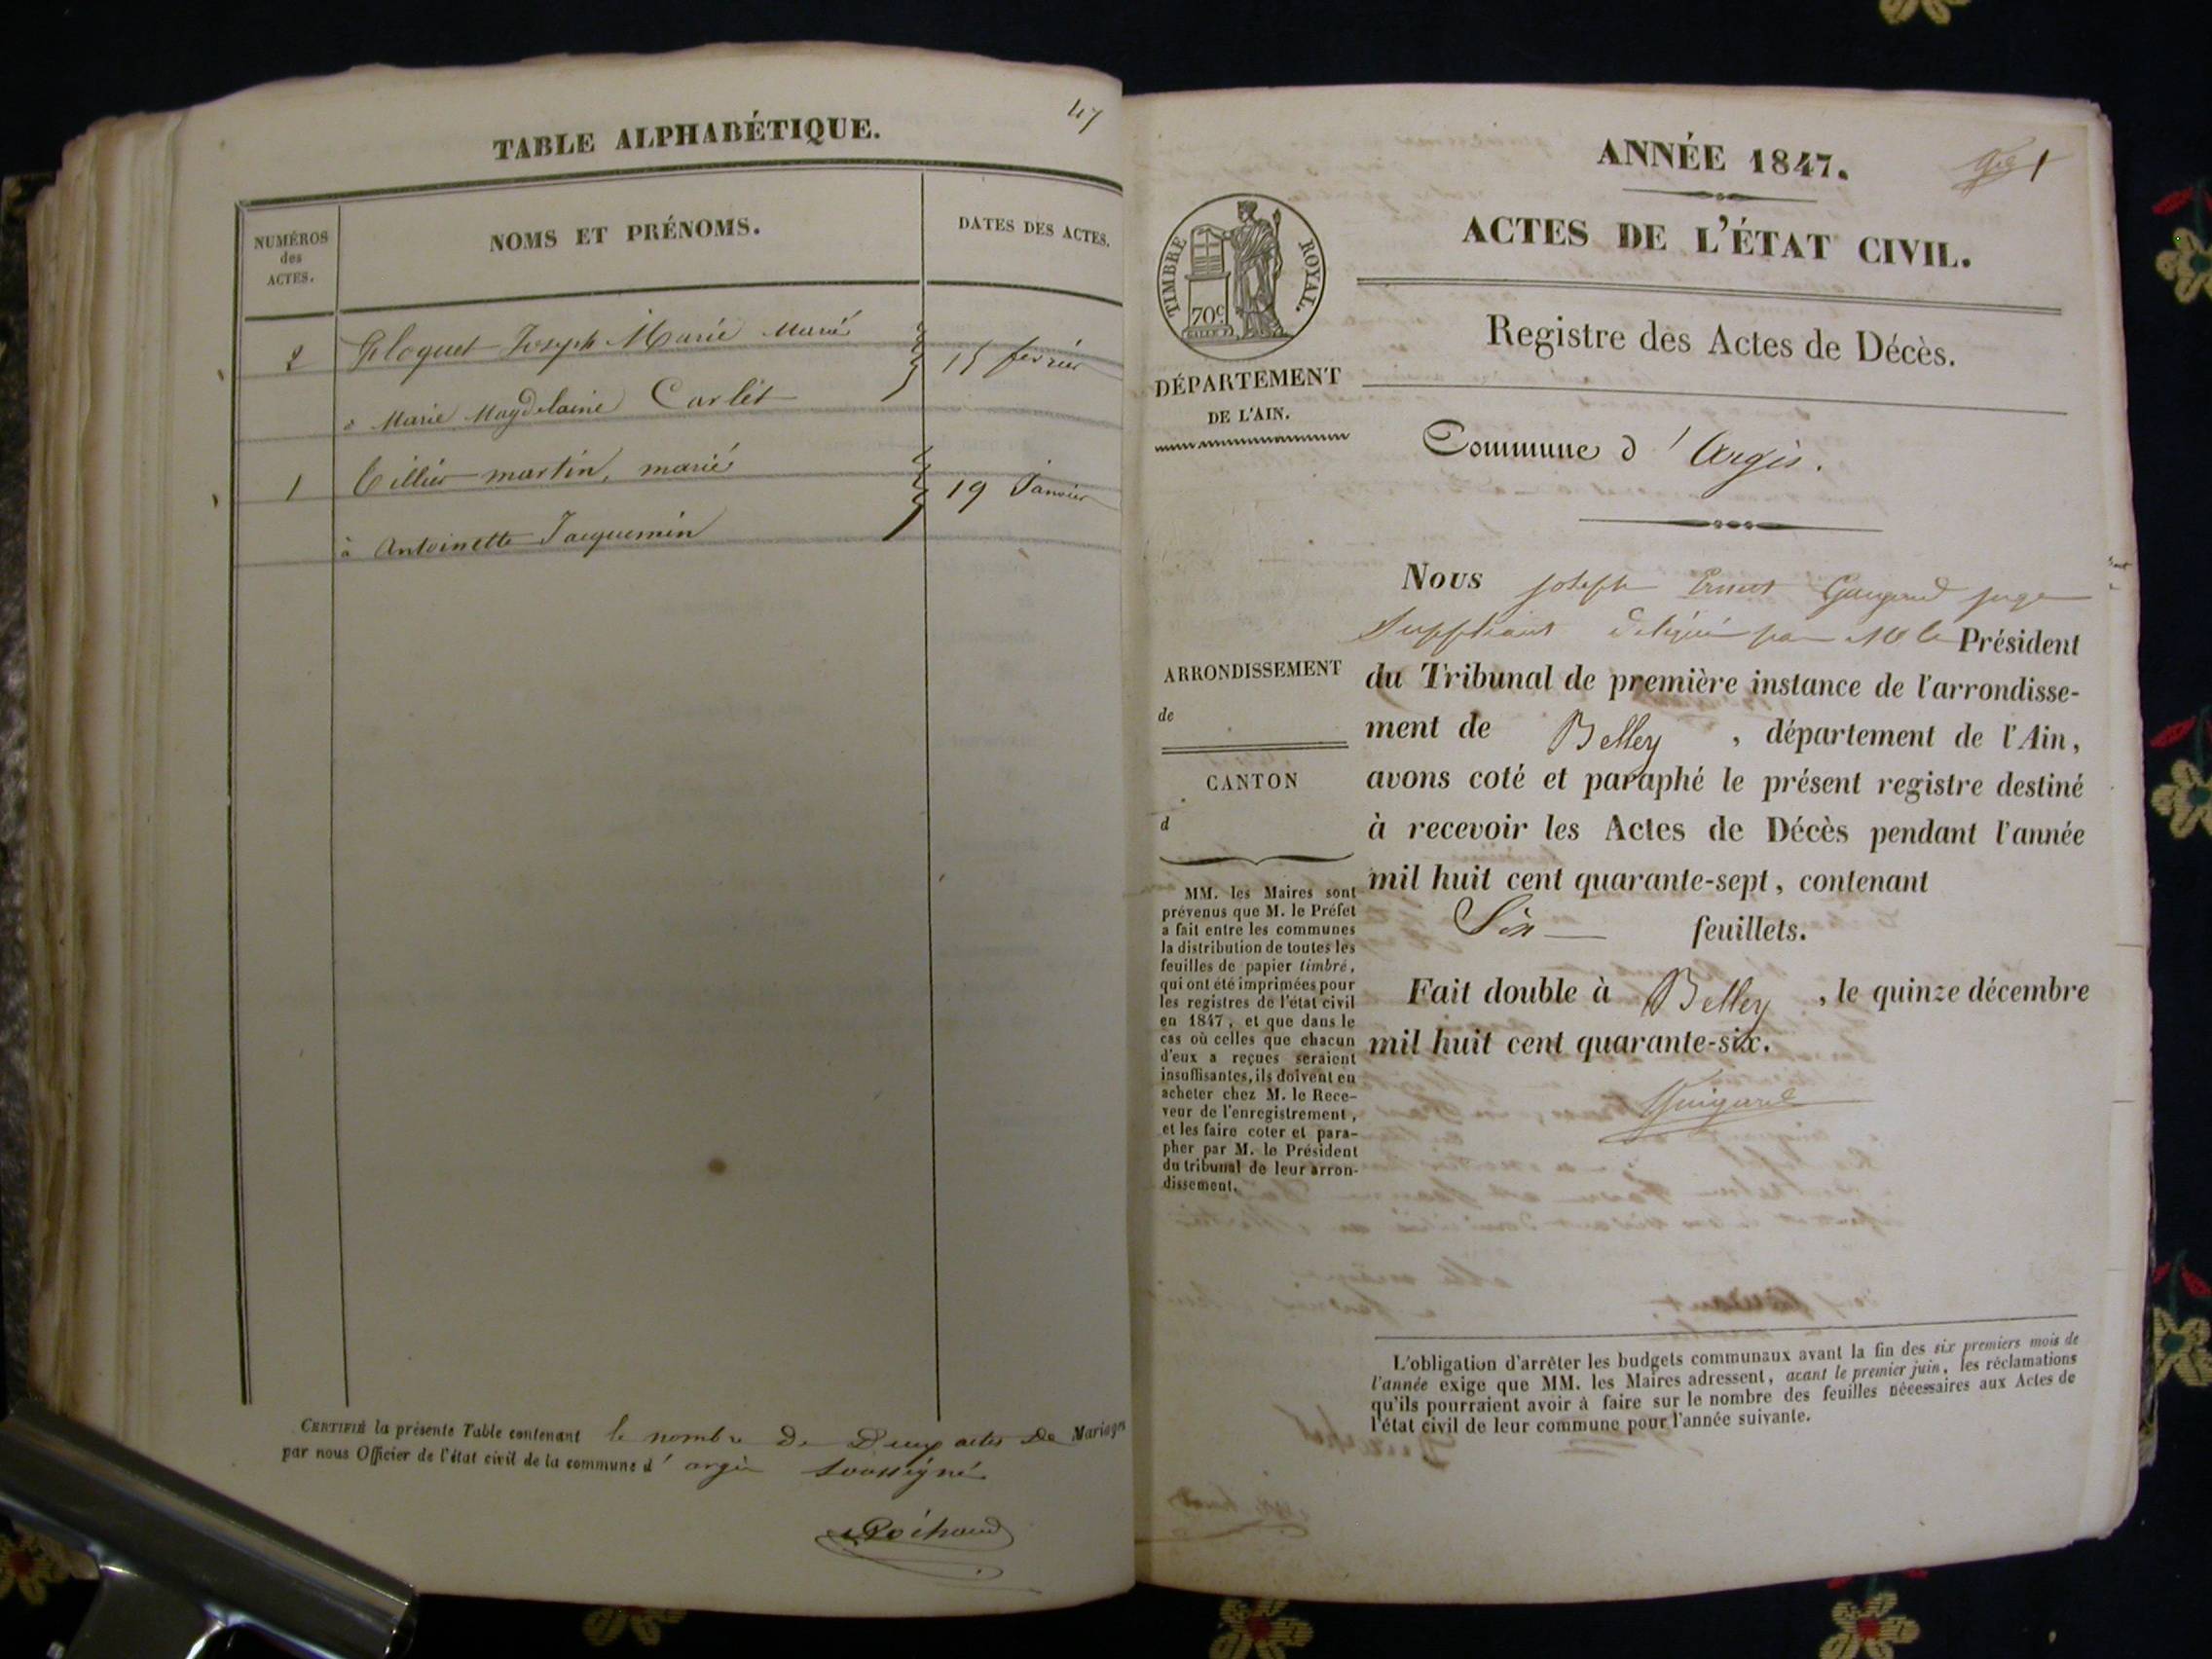 47
TABLE ALPHABÉTIQUE.
NUMÉROS
des
ACTES.
NOMS ET PRÉNOMS.
DATES DES ACTES.
2 Joseph Marie Marié 15 février
à Marie Magdelaine Carlet
1 Tillier martin, marié 19 Janvier
à Antoinette Jacquemin
CERTIFIÉ la présente Table contenant le nombre De Deux actes De Mariages
par nous Officier de l'état civil de la commune d' argis soussigné
ANNÉE 1847.
1
ACTES DE L'ÉTAT CIVIL.
TIMBRE ROYAL.
70c
Registre des Actes de Décès.
DÉPARTEMENT
DE L'AIN.
Commune d'Argis.
Nous joseph Ernest juge
Suppléant délégué par M le Président
ARRONDISSEMENT
de
CANTON
d
du Tribunal de première instance de l'arrondisse-
ment de Belley, département de l'Ain,
avons coté et paraphé le présent registre destiné
à recevoir les Actes de Décès pendant l'année
mil huit cent quarante-sept, contenant
Six feuillets.
Fait double à Belley, le quinze décembre
mil huit cent quarante-six.
MM. les Maires sont
prévenus que M. le Préfet
a fait entre les communes
la distribution de toutes les
feuilles de papier timbré,
qui ont été imprimées pour
les registres de l'état civil
en 1847, et que dans le
cas où celles que chacun
d'eux a reçues seraient
insuffisantes, ils doivent en
acheter chez M. le Rece-
veur de l'enregistrement,
et les faire coter et para-
pher par M. le Président
du tribunal de leur arron-
dissement.
L'obligation d'arrêter les budgets communaux avant la fin des six premiers mois de
l'année exige que MM. les Maires adressent, avant le premier juin, les réclamations
qu'ils pourraient avoir à faire sur le nombre des feuilles nécessaires aux Actes de
l'état civil de leur commune pour l'année suivante.